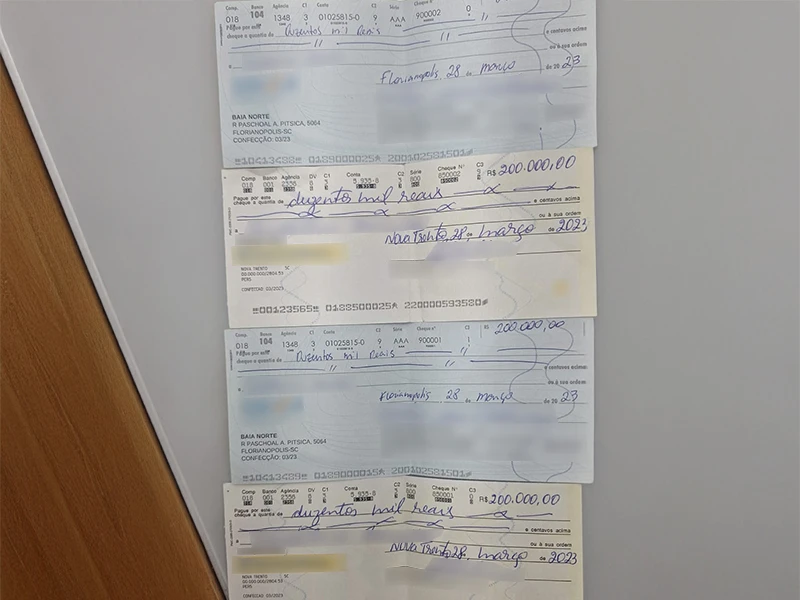 Comp. Banco Agência C1 Conta C2 Série Cheque nº
018 104 1348 3 01025815-0 9 AAA 900002 0
Pague por este
cheque a quantia de Duzentos mil Reais
e centavos acima
ou à sua ordem
Florianopolis 28 de março de 20 23
BAIA NORTE
R PASCHOAL A. PITSICA, 5064
FLORIANOPOLIS-SC
CONFECÇÃO: 03/23
Comp Banco Agência DV C1 Conta C2 Série Cheque Nº C3
018 001 2356 5 935-8 800 850002 R$ 200.000,00
Pague por este
cheque a quantia de duzentos mil reais
e centavos acima
ou à sua ordem
Nova Trento, 28 de março de 2023
NOVA TRENTO SC
CONFECCAO: 03/2023
00123565 0188500025 220000593580
Comp. Banco Agência C1 Conta C2 Série Cheque nº R$ 200.000,00
018 104 1348 3 01025815-0 9 AAA 900001 1
Pague por este
cheque a quantia de Duzentos mil Reais
e centavos acima
ou à sua ordem
Florianopolis 28 de março de 20 23
BAIA NORTE
R PASCHOAL A. PITSICA, 5064
FLORIANOPOLIS-SC
CONFECÇÃO: 03/23
Comp Banco Agência DV C1 Conta C2 Série Cheque Nº C3
018 001 2356 5 935-8 800 850001 R$ 200.000,00
Pague por este
cheque a quantia de duzentos mil reais
e centavos acima
ou à sua ordem
Nova Trento 28, março de 2023
NOVA TRENTO SC
CONFECCAO: 03/2023